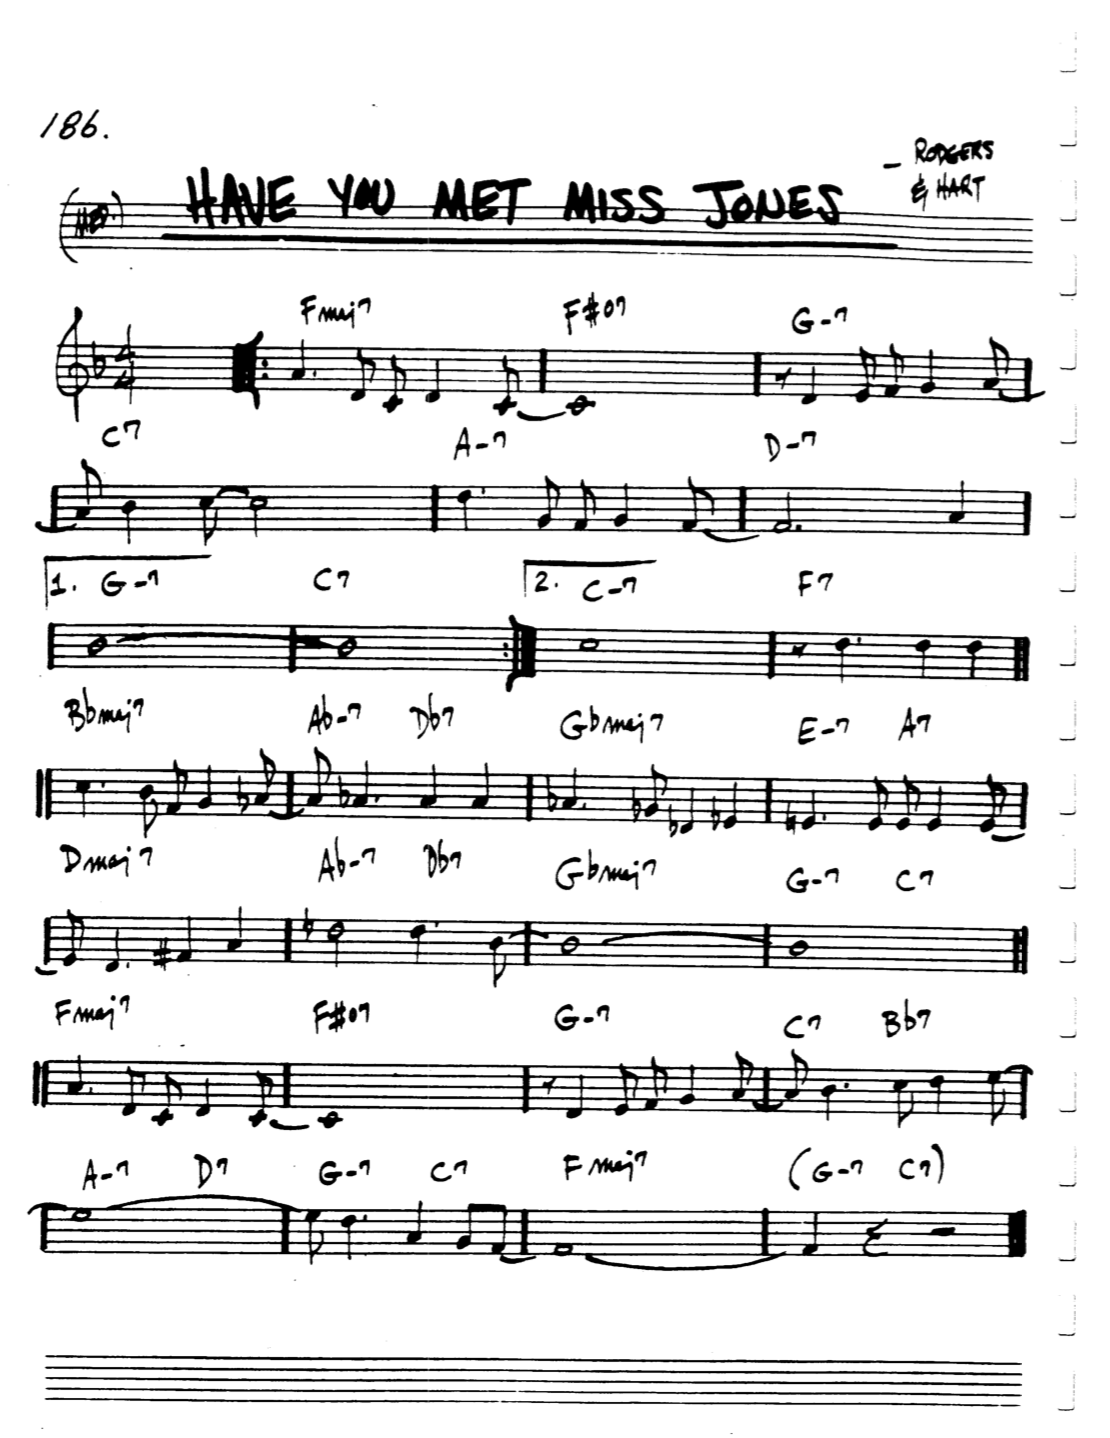 186.
— RODGERS
& HART
(MED.) HAVE YOU MET MISS JONES
Fmaj7 F#o7 G-7
4
4
C7 A-7 D-7
1. G-7 C7 2. C-7 F7
Bbmaj7 Ab-7 Db7 Gbmaj7 E-7 A7
Dmaj7 Ab-7 Db7 Gbmaj7 G-7 C7
Fmaj7 F#o7 G-7 C7 Bb7
A-7 D7 G-7 C7 Fmaj7 (G-7 C7)